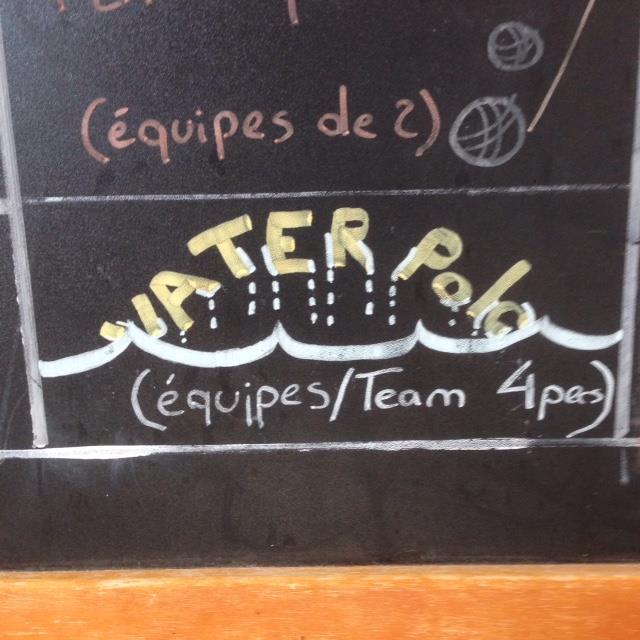 (équipes de 2)
WATER Polo
(équipes/Team 4pers)